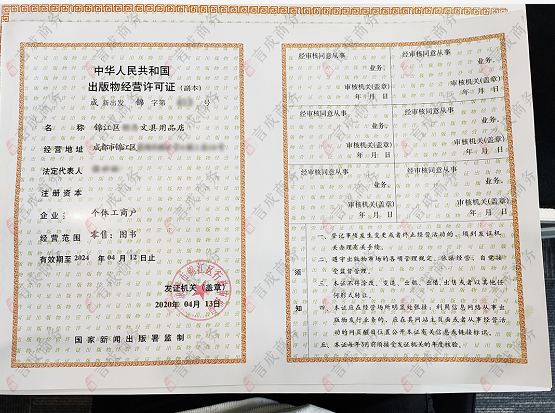 中华人民共和国
出版物经营许可证（副本）
成 新出发 锦 字第 号
名 称 锦江区 文具用品店
经营地址 成都市锦江区
法定代表人
注册资本
企业 个体工商户
经营范围 零售：图书
有效期至2024 年04 月12日止
发证机关（盖章）
2020年 04月 13日
国家新闻出版署监制
经审核同意从事
业务。
审核机关(盖章)
年 月 日
经审核同意从事
业务。
审核机关(盖章)
年 月 日
经审核同意从事
业务。
审核机关(盖章)
年 月 日
经审核同意从事
业务。
审核机关(盖章)
年 月 日
经审核同意从事
业务。
审核机关(盖章)
年 月 日
经审核同意从事
业务。
审核机关(盖章)
年 月 日
须知
一、登记项发生变更或者终止经营活动的，须到发证机
关办理有关手续。
二、遵守出版物市场的各项管理规定，依法经营，自觉接
受监督管理。
三、本证不得涂改、变造、出租、出借、出售或者以其他任
何形式转让。
四、本证应在经营场所明显处张挂；利用信息网络从事出
版物发行业务的，应在其网站主页面或者从事经营活
动的网页醒目位置公开本证有关信息或链接标识。
五、本证每年3月前须接受发证机关的年度核验。
吉成商务